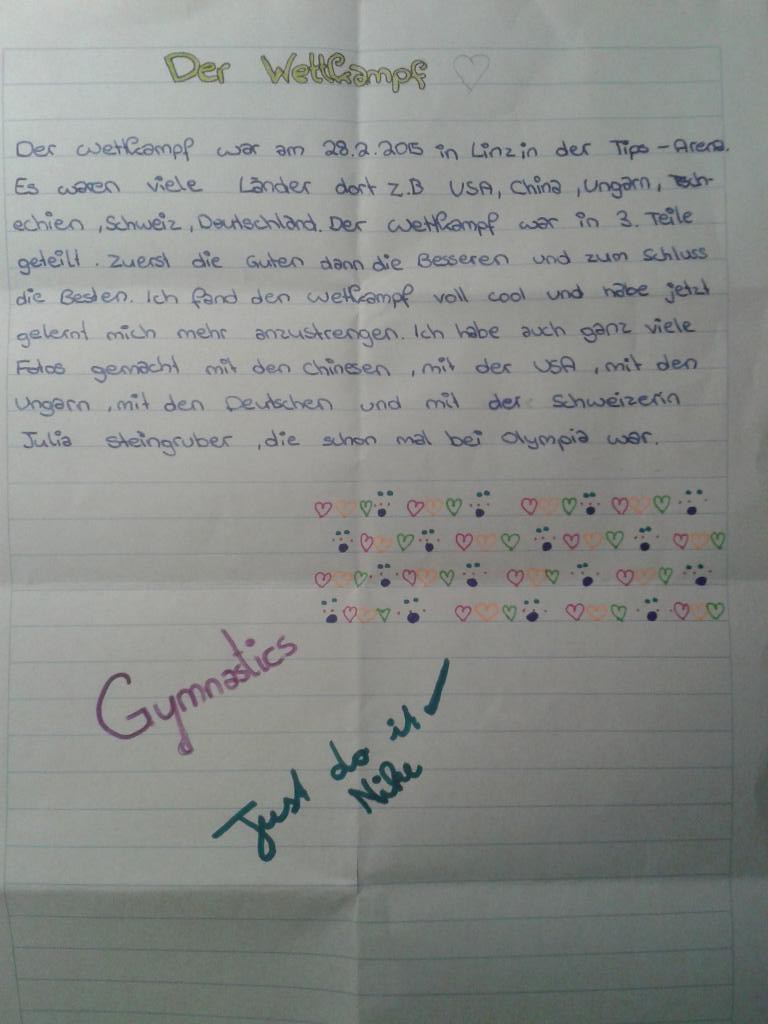 Der Wettkampf
Der Wettkampf war am 28.2.2015 in Linz in der Tips-Arena.
Es waren viele Länder dort z.B USA, China, Ungarn, Tsch-
echien, Schweiz, Deutschland. Der Wettkampf war in 3. Teile
geteilt. Zuerst die Guten dann die Besseren und zum Schluss
die Besten. Ich fand den Wettkampf voll cool und habe jetzt
gelernt mich mehr anzustrengen. Ich habe auch ganz viele
Fotos gemacht mit den Chinesen, mit der USA, mit den
Ungarn, mit den Deutschen und mit der Schweizerin
Julia Steingruber, die schon mal bei Olympia war.
Gymnastics
Just do it
Nike